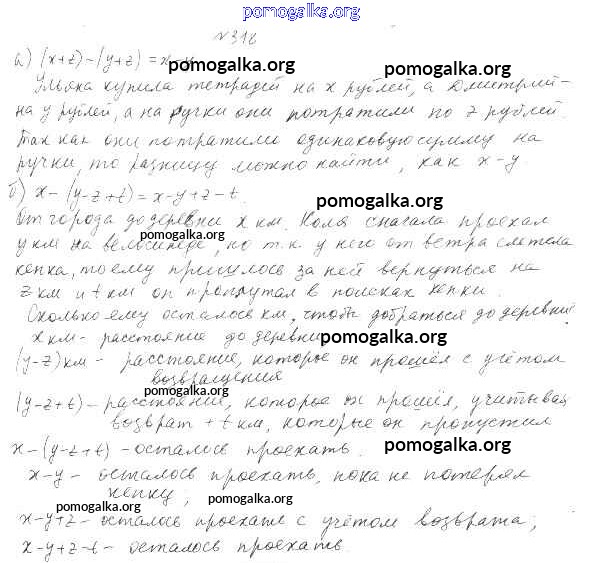 pomogalka.org
№318
а) (x+z)-(y+z)=x-y pomogalka.org pomogalka.org
купила тетрадей на x рублей, а Дмитрий -
на y рублей, а на ручки они потратили по z рублей.
Так как они потратили одинаковую сумму на
ручки, то разницу можно найти, как x-y.
б) x-(y-z+t)=x-y+z-t. pomogalka.org
От города до деревни x км. Коля сначала проехал
y км на велосипеде, но т.к. у него от ветра слетела
pomogalka.org
кепка, то ему пришлось за ней вернуться на
z км и t км он пропутал в поисках кепки.
Сколько ему осталось км, чтобы добраться до деревни
x км- расстояние до деревни pomogalka.org
(y-z) км - расстояние, которое он прошёл с учётом
возвращения
pomogalka.org
(y-z+t) - расстояние, которое он прошёл, учитывая
возврат + t км, которые он пропустил
x-(y-z+t) - осталось проехать. pomogalka.org
x-y - осталось проехать, пока не потерял
кепку; pomogalka.org
pomogalka.org
x-y+z - осталось проехать с учётом возврата;
x-y+z-t - осталось проехать.